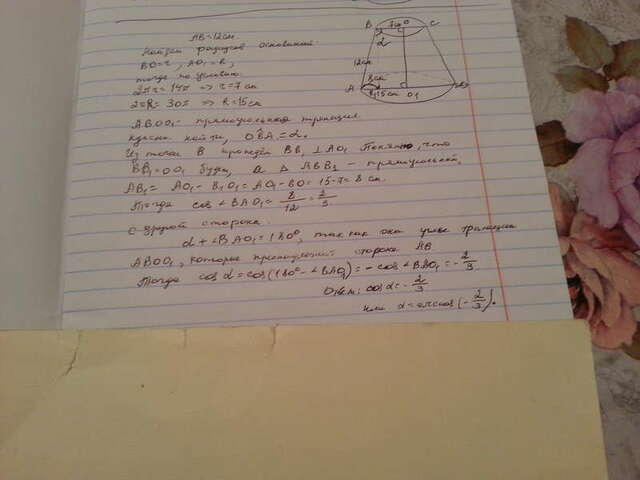 AB=12см
Найдем радиусов оснований
BO=r, AO₁=R,
тогда по условию
2πr = 14π => r=7см
2πR= 30π => R=15см
ABOO₁- прямоугольная трапеция
нужно найти, OBA=α.
Из точки B проведём BB₁⊥AO₁ Понятно, что
BB₁=OO₁ а △ ABB₁ - прямоугольный.
AB₁= AO₁-B₁O₁=AO₁-BO=15-7=8 см.
Тогда cos∠BAO₁= 8/12=2/3
С другой стороны.
α+∠BAO₁=180°, так как они углы трапеции
ABOO₁, которые стороне AB
Тогда cosα=cos(180°-∠BAO₁)=-cos∠BAO₁=-2/3
Ответ: cosα=-2/3
или α=arccos(-2/3).
B 7см O C
α
12см
8см
A B₁ 15см O₁